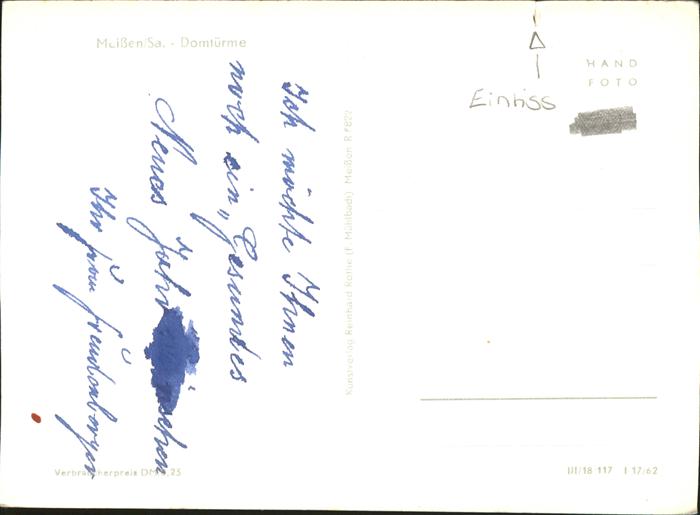 Meißen/Sa. - Domtürme
Ich möchte Ihnen
noch ein „Gesundes
Neues Jahr
Ihr frau Freudenberger
Verbraucherpreis DM 0,25
Kunstverlag Reinhard Rothe (F. Mühlbach) Meißen R F822
Einriss
HAND
FOTO
III/18 117 I 17/62